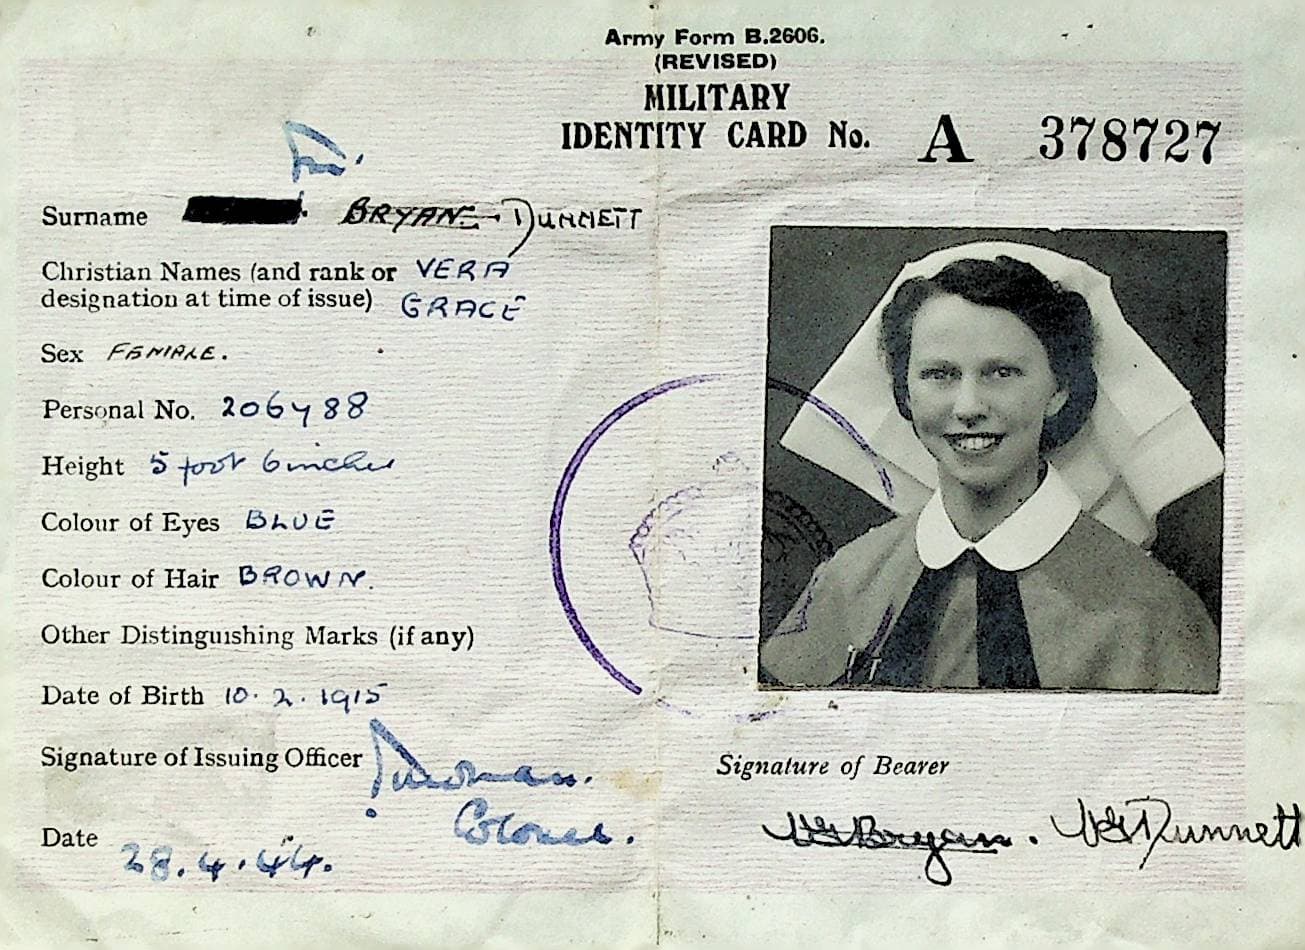 Army Form B.2606.
(REVISED)
MILITARY
IDENTITY CARD No. A 378727
Surname BRYAN DUNNETT
Christian Names (and rank or VERA
designation at time of issue) GRACE
Sex FEMALE.
Personal No. 206488
Height 5 foot 6 inches
Colour of Eyes BLUE
Colour of Hair BROWN.
Other Distinguishing Marks (if any)
Date of Birth 10.2.1915
Signature of Issuing Officer
Colonel.
Date 28.4.44.
Signature of Bearer
VG Bryan. VG Dunnett